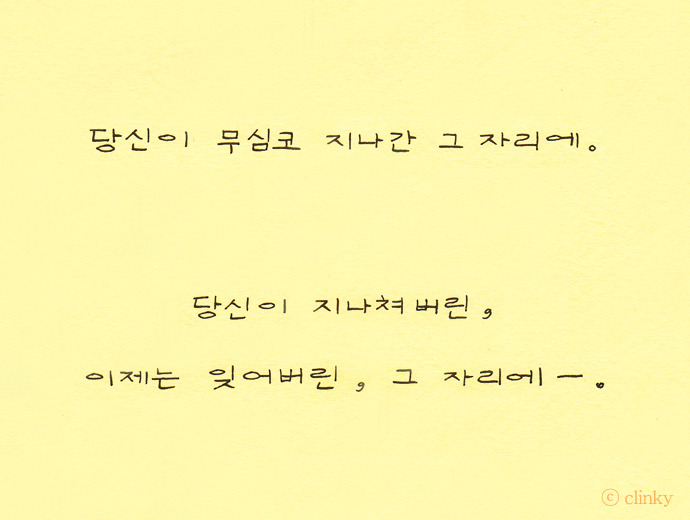 당신이 무심코 지나간 그 자리에。
당신이 지나쳐버린,
이제는 잊어버린, 그 자리에ㅡ。
ⓒ clinky